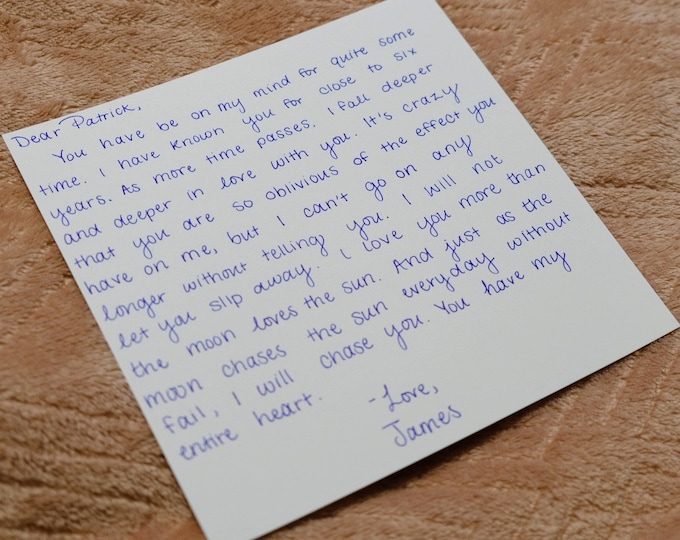 Dear Patrick,
You have be on my mind for quite some
time. I have known you for close to six
years. As more time passes. I fall deeper
and deeper in love with you. It's crazy
that you are so oblivious of the effect you
have on me, but I can't go on any
longer without telling you. I will not
let you slip away. I love you more than
the moon loves the sun. And just as the
moon chases the sun everyday without
fail, I will chase you. You have my
entire heart.
-Love,
James